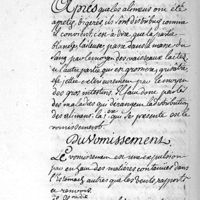 Après que les alimens ont été
digérés, ils sont distribués comme
il convient, c'est à dire, que la partie
blanche, laiteuse, passe dans la masse du
sang par le moyen des vaisseaux lactés,
et l'autre partie qui est grossière,
est jetée extérieurement par le moyen
des gros intestins. Il faut donc parler
des maladies qui dérangent la distribution
des alimens. La 1re qui se présente est le
vomissement.
Du Vomissement
Le vomissement est une expulsion
par en haut des matières contenues dans
l'estomac, autres que les vents, rapports